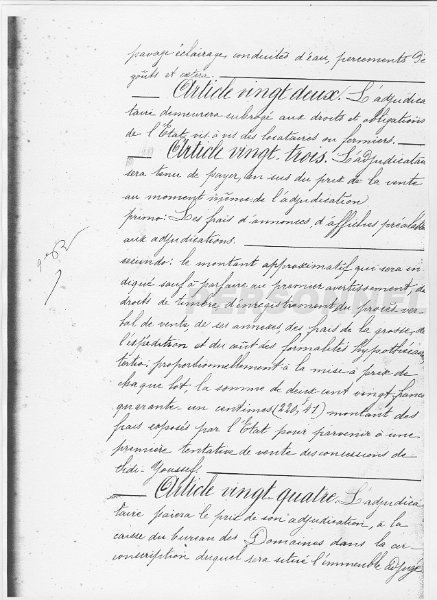 pavage éclairage, conduites d'eau, percements d'é
goûts et cætera.
Article vingt deux. L'adjudica
taire demeurera subrogé aux droits et obligations
de l'État vis à vis des locataires ou fermiers.
Article vingt-trois. L'adjudicatai
sera tenu de payer, en sus du prix de la vente
au moment même de l'adjudication
primo: Les frais d'annonces, d'affiches préalable
aux adjudications.
secundo: le montant approximatif qui sera in
diqué sauf à parfaire au premier avertissement, de
droits de timbre d'enregistrement du procès ver
bal de vente, de ses annexes des frais de la grosse, de
l'expédition et du coût des formalités hypothécai
tertio: proportionnellement à la mise à prix de
chaque lot, la somme de deux cent vingt francs
quarante un centimes (220,41) montant des
frais exposés par l'État pour parvenir à une
première tentative de vente des concessions de
Sidi-Youssef.
Article vingt-quatre. L'adjudica
taire paiera le prix de son adjudication, à la
caisse du bureau des Domaines dans la cir
conscription duquel sera situé l'immeuble adjugé